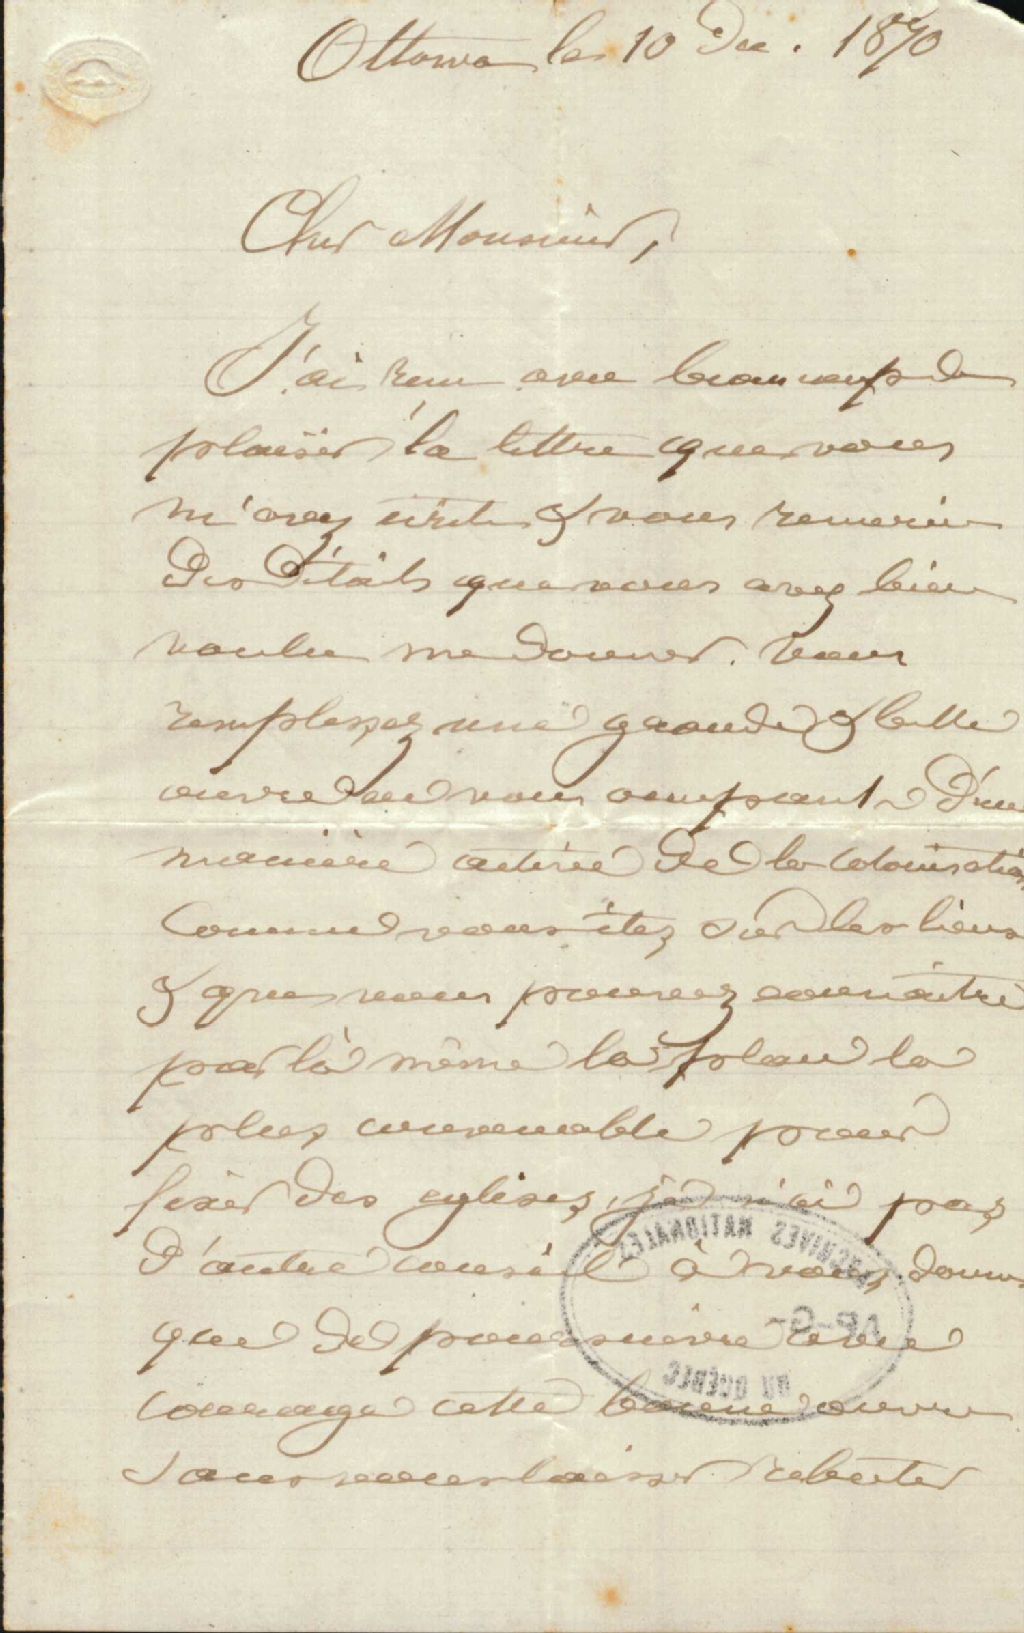 Ottawa le 10 Dec. 1870
Cher Monsieur,
J'ai reçu avec beaucoup de
plaisir la lettre que vous
m'avez écrite & vous remercie
des détails que vous avez bien
voulu me donner. Vous
remplissez une grande & belle
œuvre en vous occupant d'une
manière active de la colonisation
Comme vous êtez sur les lieux
& que vous pouvez connoître
par là même la place la
plus convenable pour
fixer des eglises, je n'ai pas
d'autre conseil à vous donner
que de poursuivre avec
courage cette bonne œuvre
sans vous laisser rebuter
ARCHIVES NATIONALES
AP-G-
DU QUÉBEC